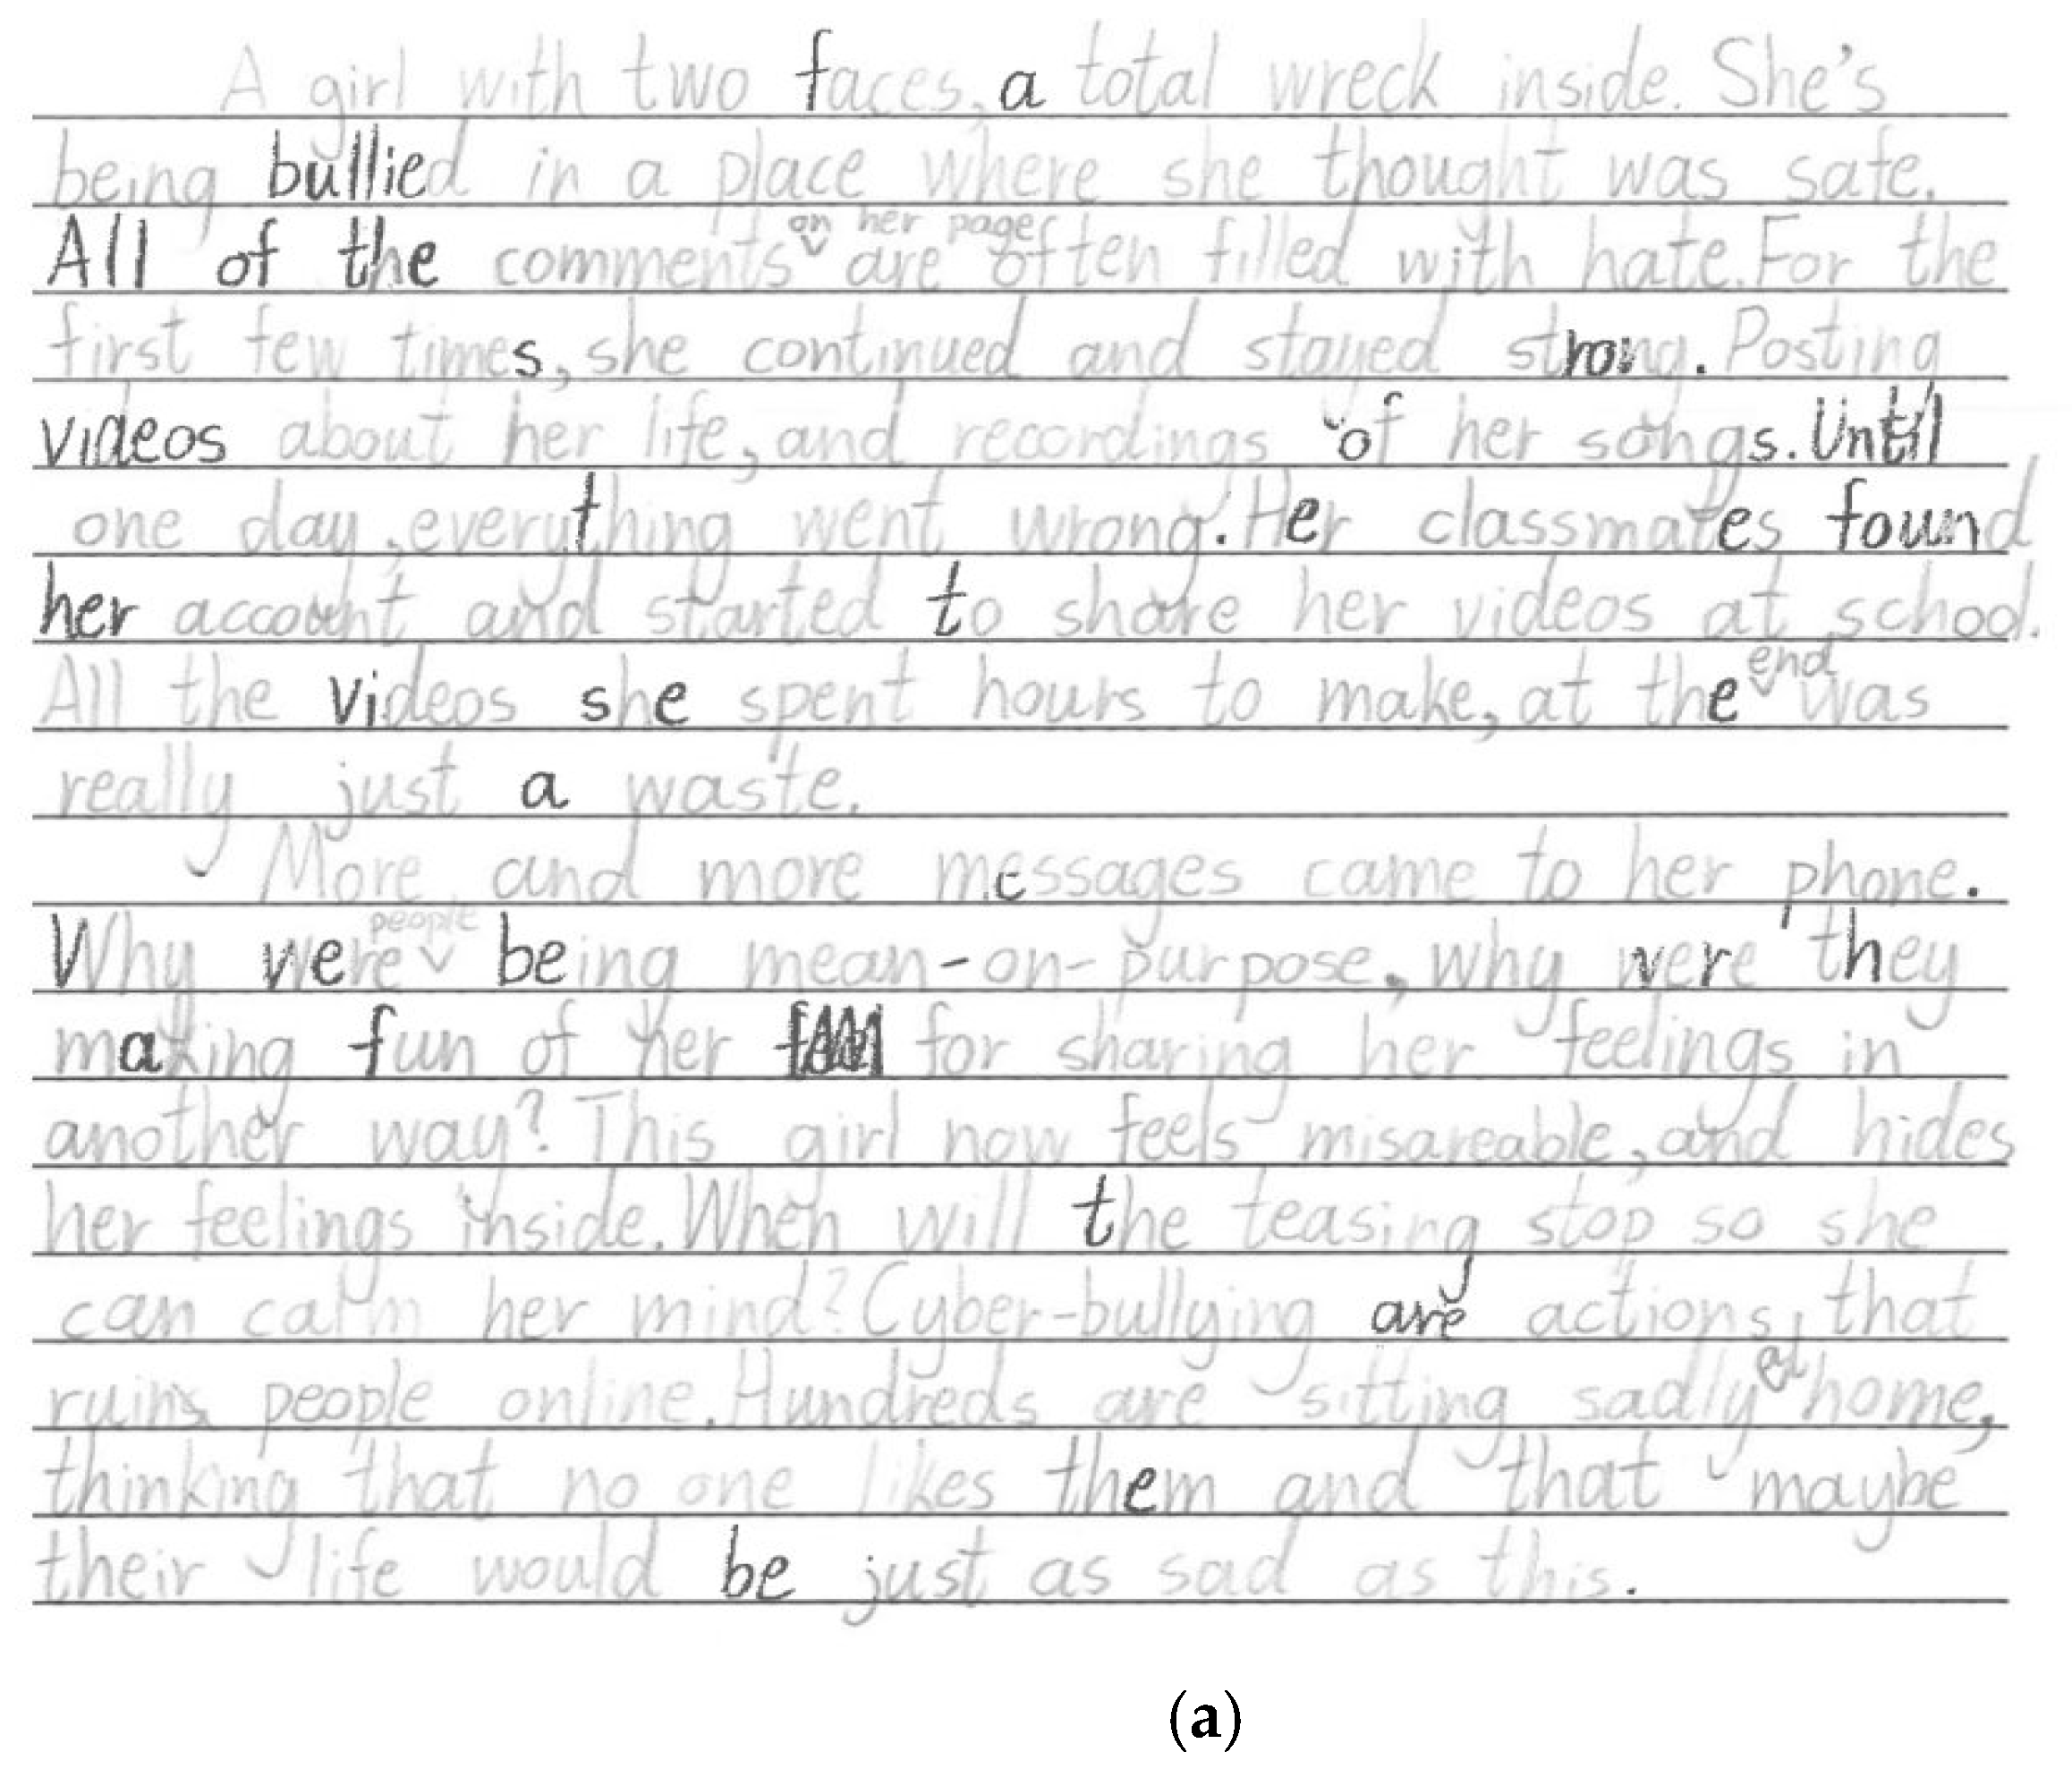 A girl with two faces, a total wreck inside. She's
being bullied in a place where she thought was safe.
All of the comments on her page are often filled with hate. For the
first few times, she continued and stayed strong. Posting
videos about her life, and recordings of her songs. Until
one day, everything went wrong. Her classmates found
her account and started to share her videos at school.
All the videos she spent hours to make, at the end was
really just a waste.
More and more messages came to her phone.
Why were people being mean-on-purpose, why were they
making fun of her for sharing her feelings in
another way? This girl now feels misareable, and hides
her feelings inside. When will the teasing stop so she
can calm her mind? Cyber-bullying are actions, that
ruins people online. Hundreds are sitting sadly at home,
thinking that no one likes them and that maybe
their life would be just as sad as this.
(a)